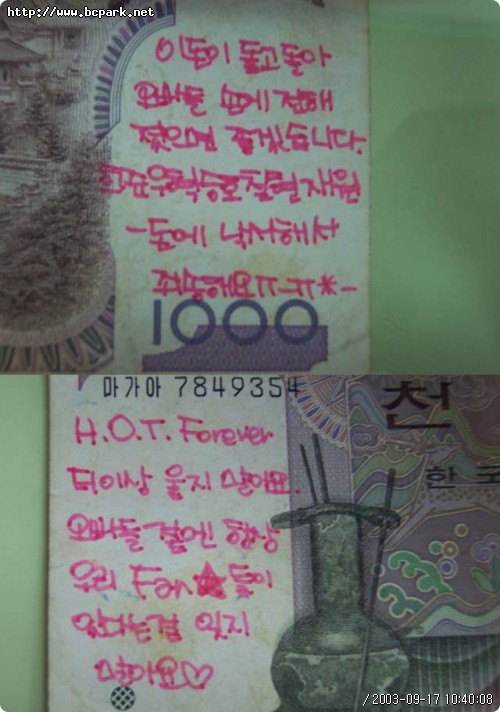 http://www.bcpark.net
이돈이 돌고돌아
오빠들 손에 전해
졌으면 좋겠습니다.
희준우혁승호칠현재원
-돈에 낙서해서
죄송해요ㅠ-ㅠ*-
1000
마가아 7849354
천
H.O.T. Forever
한국
더이상 울지 말아요.
오빠들 곁엔 항상
우리 Fan★들이
있다는걸 잊지
말아요♡
/2003-09-17 10:40:08